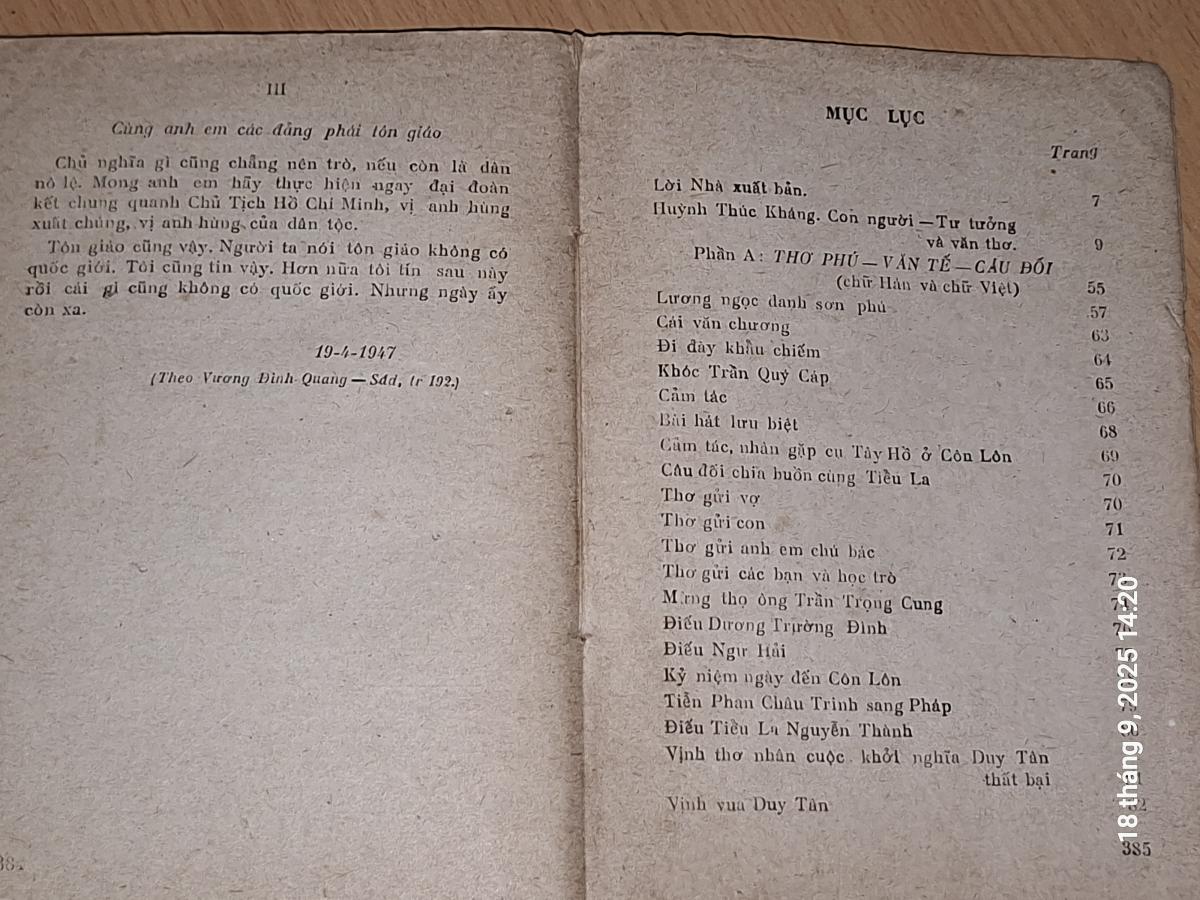 III
Cùng anh em các đảng phái tôn giáo
Chủ nghĩa gì cũng chẳng nên trò, nếu còn là dân
nô lệ. Mong anh em hãy thực hiện ngay đại đoàn
kết chung quanh Chủ Tịch Hồ Chí Minh, vị anh hùng
xuất chúng, vị anh hùng của dân tộc.
Tôn giáo cũng vậy. Người ta nói tôn giáo không có
quốc giới. Tôi cũng tin vậy. Hơn nữa tôi tin sau này
rồi cái gì cũng không có quốc giới. Nhưng ngày ấy
còn xa.
19-4-1947
(Theo Vương Đình Quang — Sđd, tr 192.)
MỤC LỤC
Trang
Lời Nhà xuất bản. 7
Huỳnh Thúc Kháng. Con người — Tư tưởng
và văn thơ. 9
Phần A: THƠ PHÚ — VĂN TẾ — CÂU ĐỐI
(chữ Hán và chữ Việt) 55
Lương ngọc danh sơn phú 57
Cái văn chương 63
Đi đày khẩu chiếm 64
Khóc Trần Quý Cáp 65
Cảm tác 66
Bài hát lưu biệt 68
Cảm tác, nhân gặp cụ Tây Hồ ở Côn Lôn 69
Câu đối chia buồn cùng Tiểu La 70
Thơ gửi vợ 70
Thơ gửi con 71
Thơ gửi anh em chú bác 72
Thơ gửi các bạn và học trò
Mừng thọ ông Trần Trọng Cung
Điếu Dương Trường Đình
Điếu Ngư Hải
Kỷ niệm ngày đến Côn Lôn
Tiễn Phan Châu Trinh sang Pháp
Điếu Tiểu La Nguyễn Thành
Vịnh thơ nhân cuộc khởi nghĩa Duy Tân
thất bại
Vịnh vua Duy Tân
385
18 tháng 9, 2025 14:20